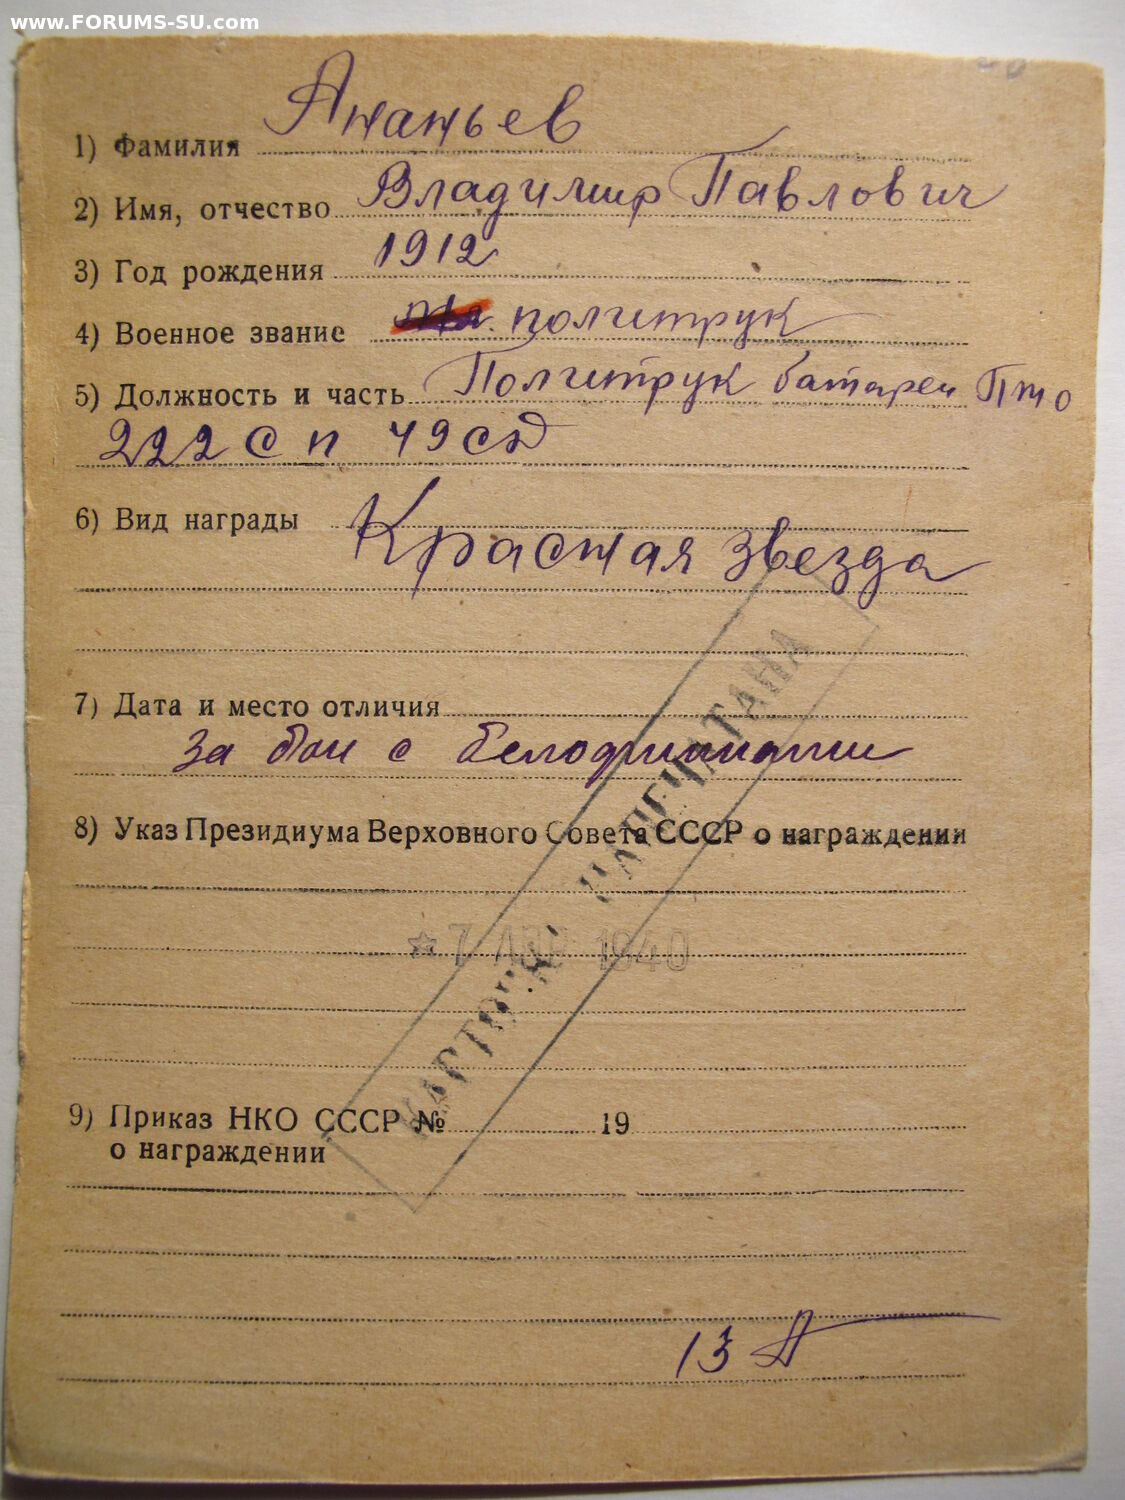 www.FORUMS-SU.com
1) Фамилия Ананьев
2) Имя, отчество Владимир Павлович
3) Год рождения 1912
4) Военное звание политрук
5) Должность и часть Политрук батареи Пто
222 С п 49 сд
6) Вид награды Красная звезда
7) Дата и место отличия
За бои с белофиннами
8) Указ Президиума Верховного Совета СССР о награждении
★ 7 АПР 1940
КАРТОЧКА НАПЕЧАТАНА
9) Приказ НКО СССР № 19
о награждении
13